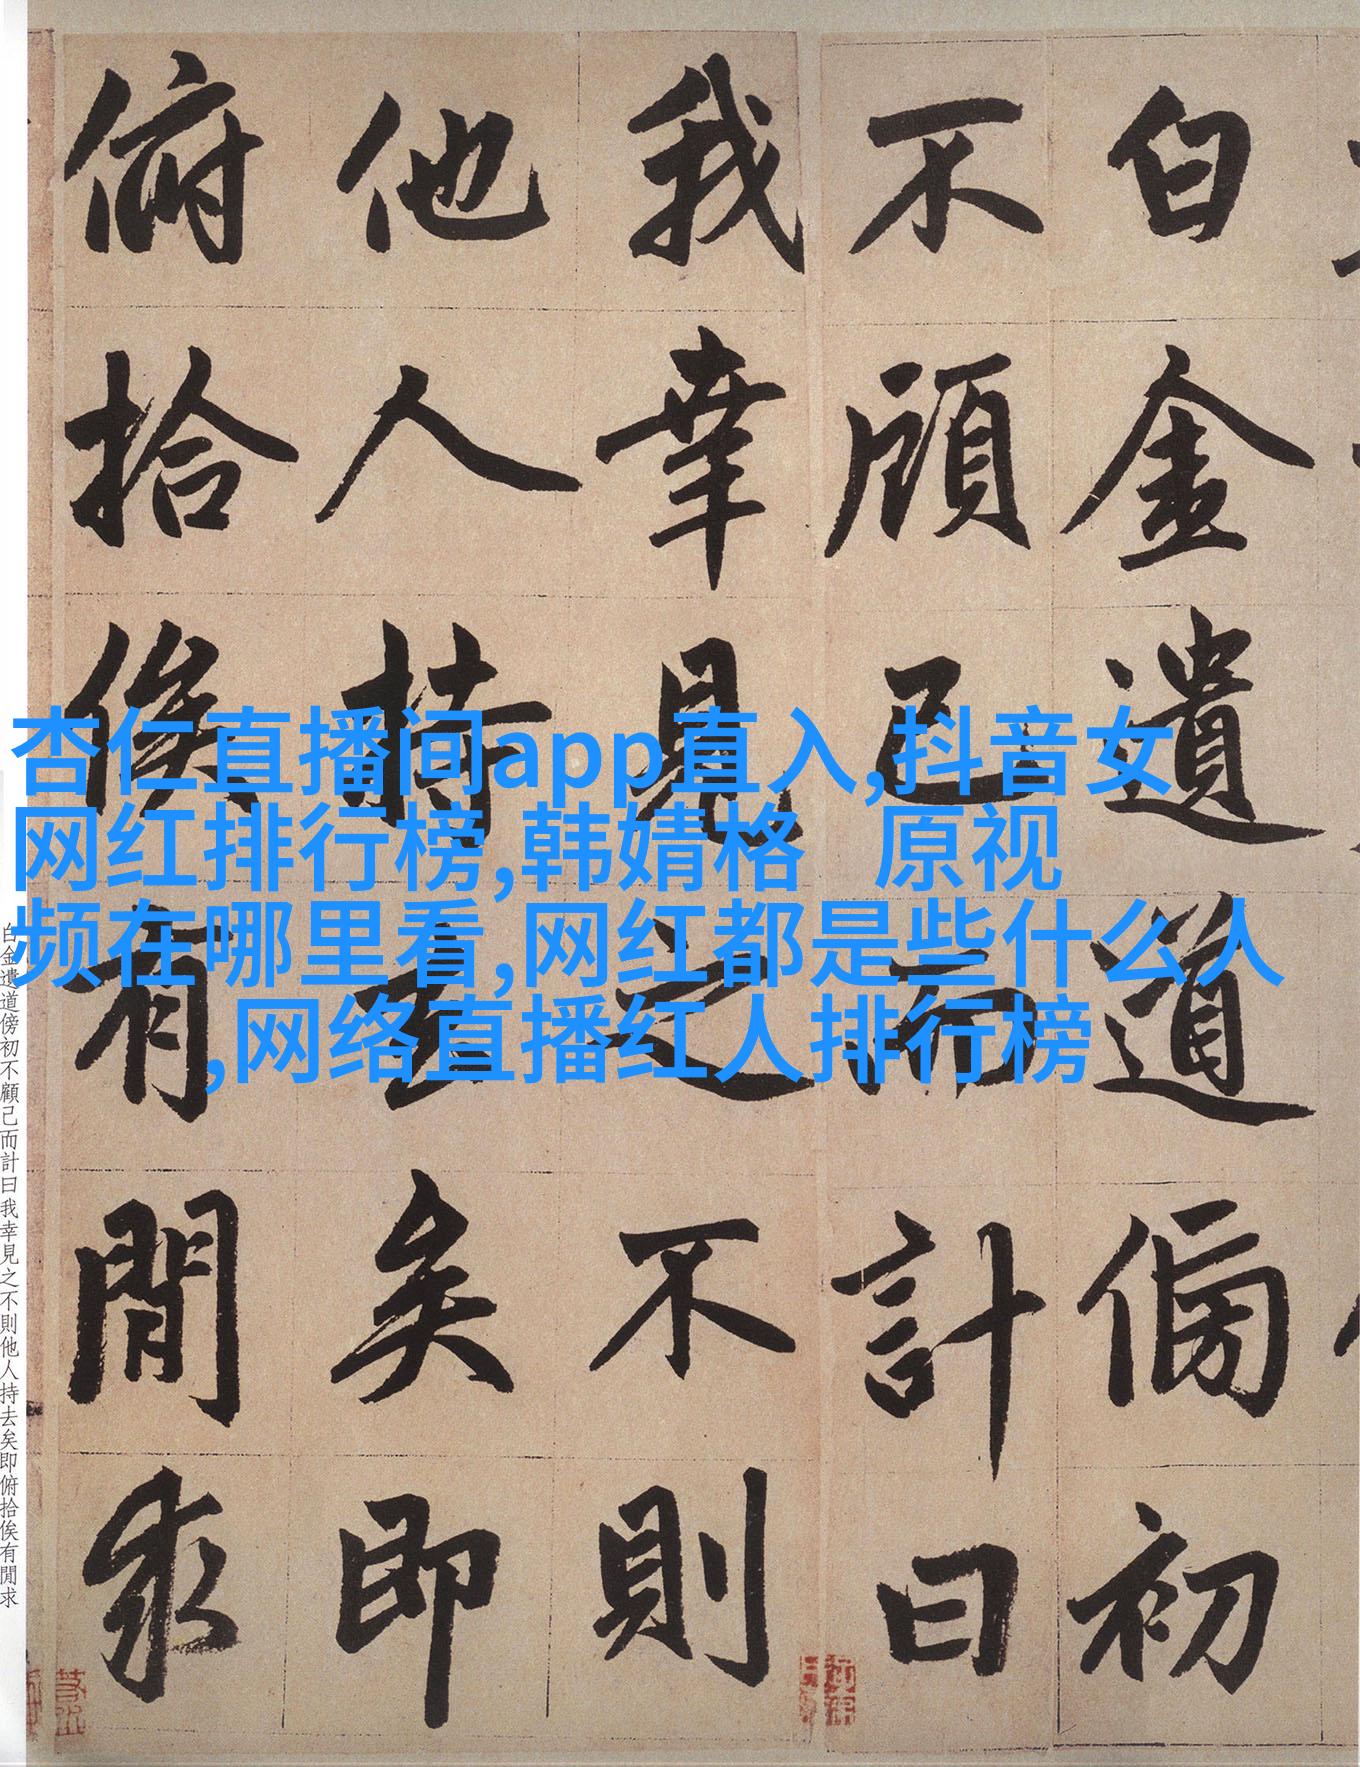 白金遺道傍初
不顧己而計曰
我幸見之不則
他人持去矣即
俯拾俟有閒求
杏仁直播间app直入,抖音女
网红排行榜,韩婧格 原视
频在哪里看,网红都是些什么人
,网络直播红人排行榜
白金遺道傍初不顧己而計曰我幸見之不則他人持去矣即俯拾俟有閒求